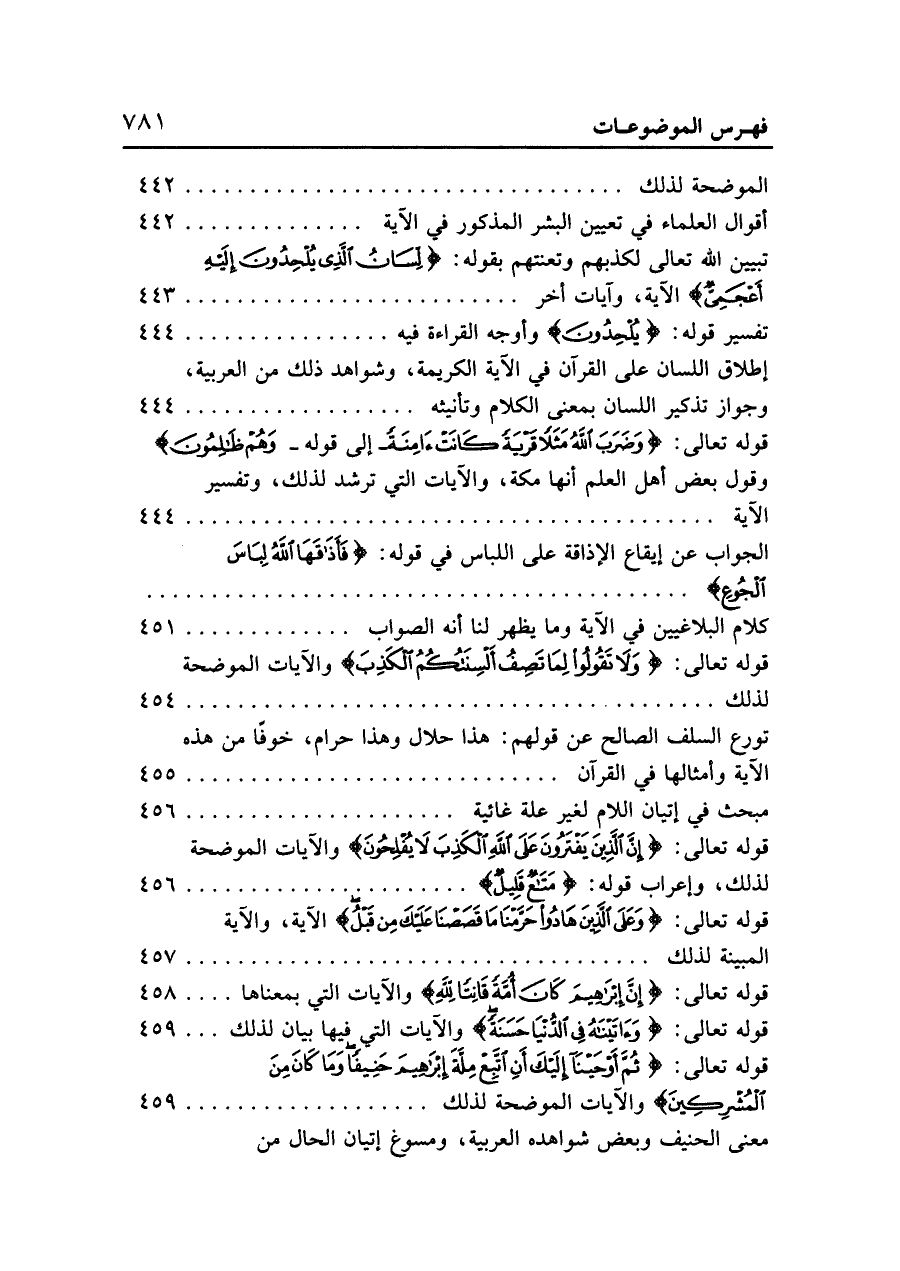 فهرس الموضوعات ٧٨١
الموضحة لذلك . . . . . . . . . . . . . . . . . . . . . . . . . . . . . . . . . . ٤٤٢
أقوال العلماء في تعيين البشر المذكور في الآية . . . . . . . . . . . . . . ٤٤٢
تبيين الله تعالى لكذبهم وتعنتهم بقوله: ﴿لِّسَانُ ٱلَّذِى يُلْحِدُونَ إِلَيْهِ
أَعْجَمِىٌّ﴾ الآية، وآيات أخر . . . . . . . . . . . . . . . . . . . . . . . . . . ٤٤٣
تفسير قوله: ﴿يُلْحِدُونَ﴾ وأوجه القراءة فيه . . . . . . . . . . . . . . . . ٤٤٤
إطلاق اللسان على القرآن في الآية الكريمة، وشواهد ذلك من العربية،
وجواز تذكير اللسان بمعنى الكلام وتأنيثه . . . . . . . . . . . . . . . . . . ٤٤٤
قوله تعالى: ﴿وَضَرَبَ ٱللَّهُ مَثَلًا قَرْيَةً كَانَتْ ءَامِنَةً ـ إلى قوله ـ وَهُمْ ظَٰلِمُونَ﴾
وقول بعض أهل العلم أنها مكة، والآيات التي ترشد لذلك، وتفسير
الآية . . . . . . . . . . . . . . . . . . . . . . . . . . . . . . . . . . . . . . . . . ٤٤٤
الجواب عن إيقاع الإذاقة على اللباس في قوله: ﴿فَأَذَٰقَهَا ٱللَّهُ لِبَاسَ
ٱلْجُوعِ﴾ . . . . . . . . . . . . . . . . . . . . . . . . . . . . . . . . . . . . . . . . . .
كلام البلاغيين في الآية وما يظهر لنا أنه الصواب . . . . . . . . . . . . . ٤٥١
قوله تعالى: ﴿وَلَا تَقُولُوا۟ لِمَا تَصِفُ أَلْسِنَتُكُمُ ٱلْكَذِبَ﴾ والآيات الموضحة
لذلك . . . . . . . . . . . . . . . . . . . . . . . . . . . . . . . . . . . . . . . . . ٤٥٤
تورع السلف الصالح عن قولهم: هذا حلال وهذا حرام، خوفًا من هذه
الآية وأمثالها في القرآن . . . . . . . . . . . . . . . . . . . . . . . . . . . . . ٤٥٥
مبحث في إتيان اللام لغير علة غائية . . . . . . . . . . . . . . . . . . . . . ٤٥٦
قوله تعالى: ﴿إِنَّ ٱلَّذِينَ يَفْتَرُونَ عَلَى ٱللَّهِ ٱلْكَذِبَ لَا يُفْلِحُونَ﴾ والآيات الموضحة
لذلك، وإعراب قوله: ﴿مَتَٰعٌ قَلِيلٌ﴾ . . . . . . . . . . . . . . . . . . . . . . ٤٥٦
قوله تعالى: ﴿وَعَلَى ٱلَّذِينَ هَادُوا۟ حَرَّمْنَا مَا قَصَصْنَا عَلَيْكَ مِن قَبْلُ﴾ الآية، والآية
المبينة لذلك . . . . . . . . . . . . . . . . . . . . . . . . . . . . . . . . . . . . ٤٥٧
قوله تعالى: ﴿إِنَّ إِبْرَٰهِيمَ كَانَ أُمَّةً قَانِتًا لِّلَّهِ﴾ والآيات التي بمعناها . . . . ٤٥٨
قوله تعالى: ﴿وَءَاتَيْنَٰهُ فِى ٱلدُّنْيَا حَسَنَةً﴾ والآيات التي فيها بيان لذلك . . . ٤٥٩
قوله تعالى: ﴿ثُمَّ أَوْحَيْنَآ إِلَيْكَ أَنِ ٱتَّبِعْ مِلَّةَ إِبْرَٰهِيمَ حَنِيفًا وَمَا كَانَ مِنَ
ٱلْمُشْرِكِينَ﴾ والآيات الموضحة لذلك . . . . . . . . . . . . . . . . . . . ٤٥٩
معنى الحنيف وبعض شواهده العربية، ومسوغ إتيان الحال من